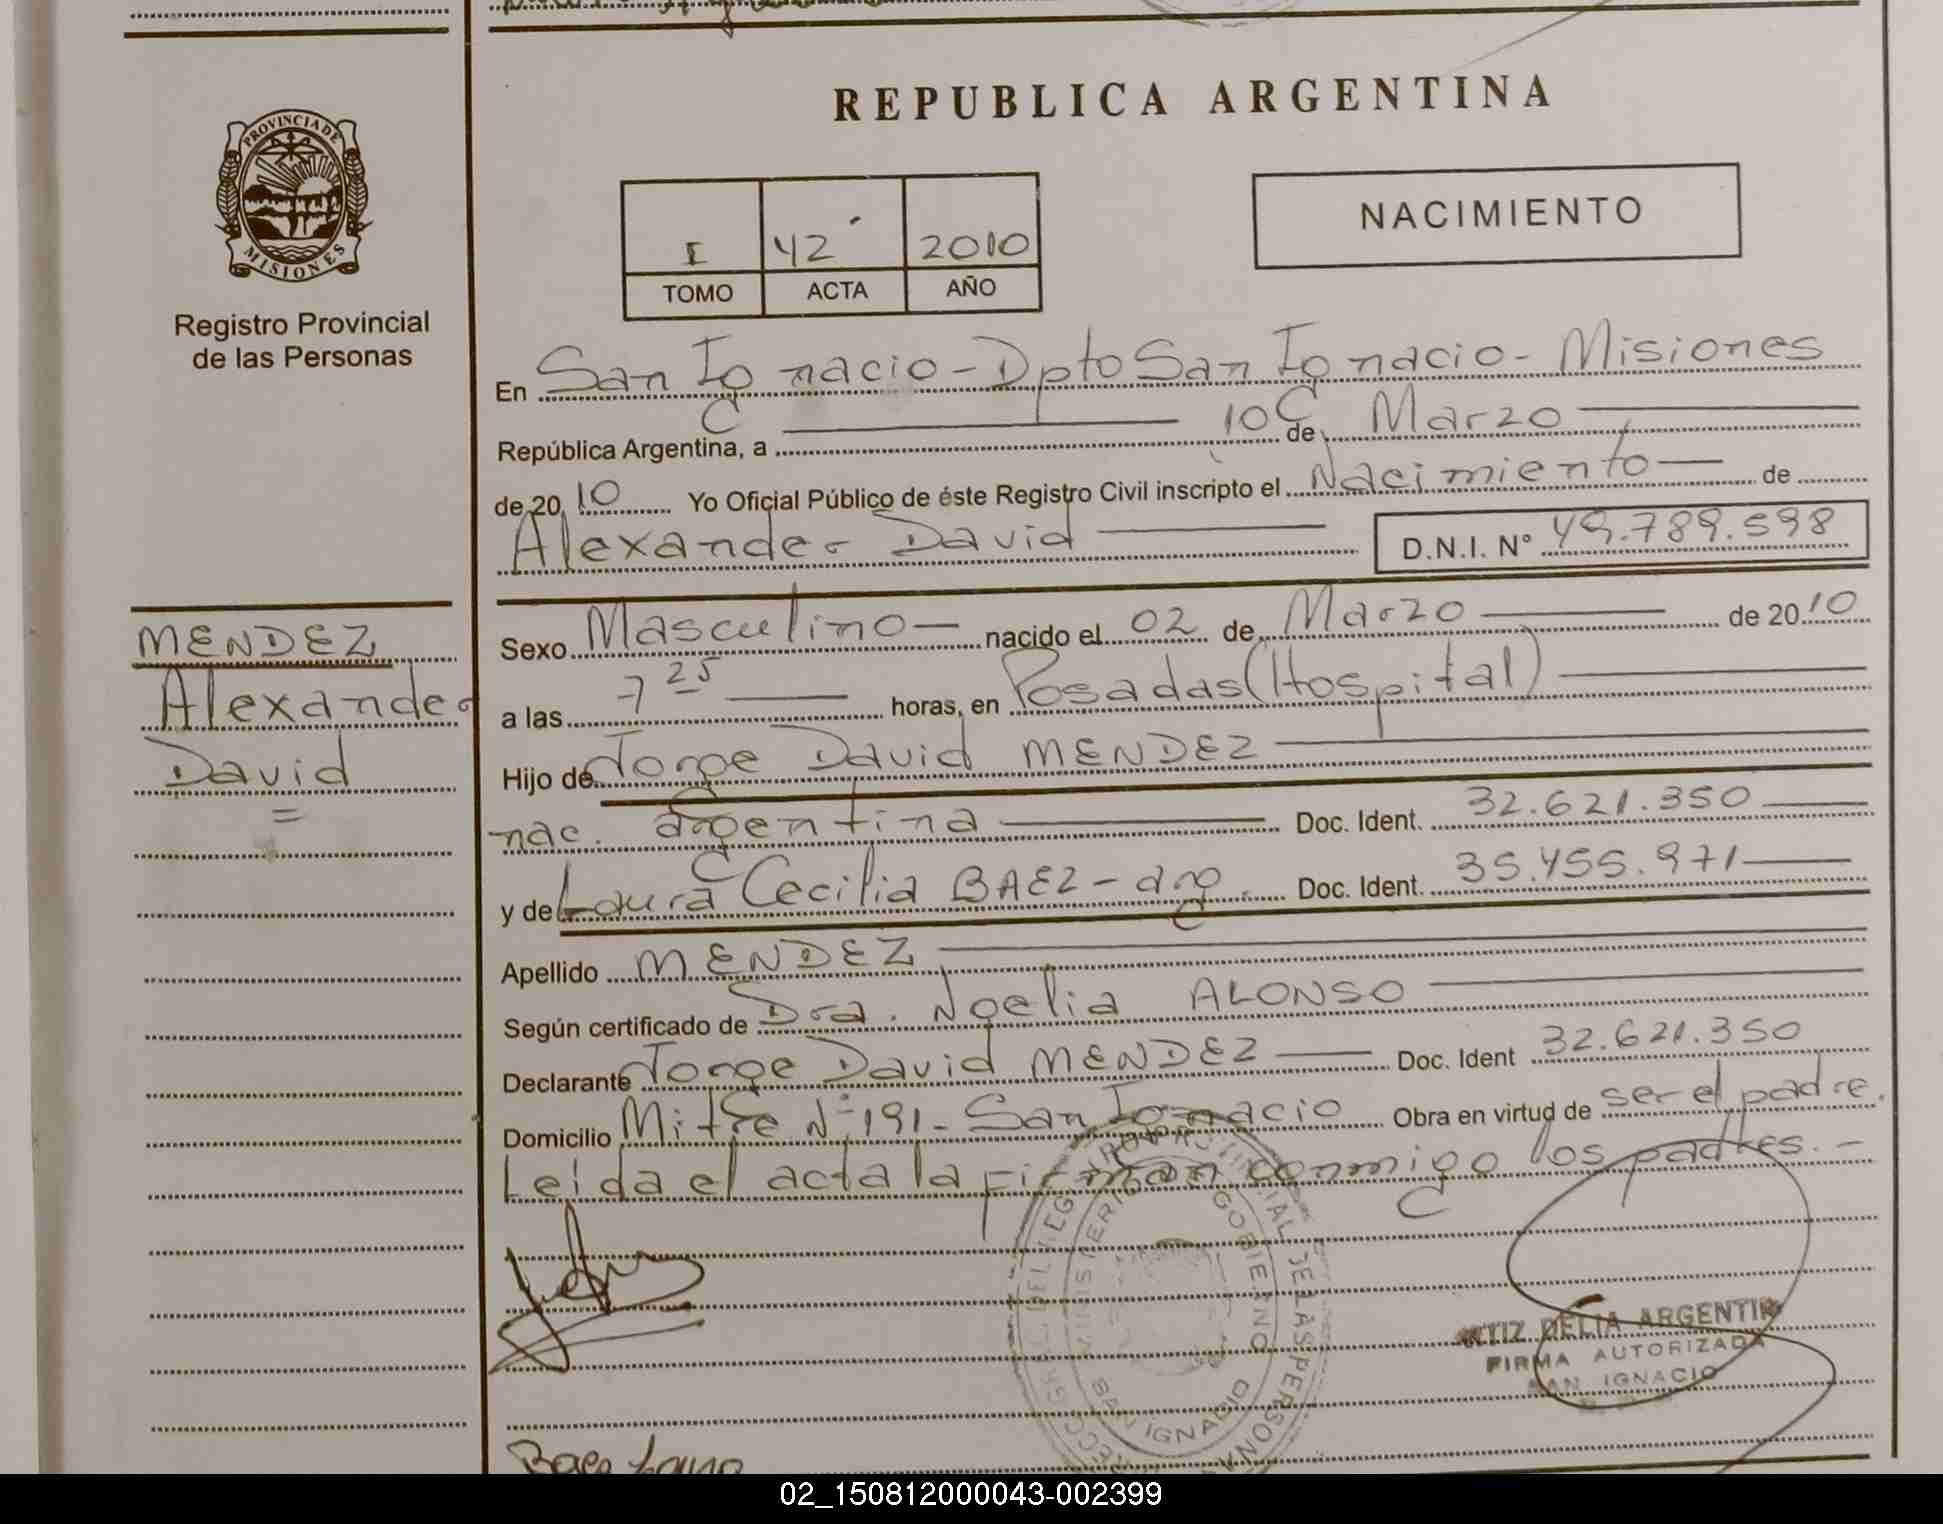 REPUBLICA ARGENTINA
PROVINCIA DE
MISIONES
Registro Provincial
de las Personas
I 42 2010
TOMO ACTA AÑO
NACIMIENTO
En San Ignacio - Dpto San Ignacio - Misiones
República Argentina, a 10 de Marzo
de 20 10 Yo Oficial Público de éste Registro Civil inscripto el Nacimiento de
Alexander David D.N.I. N° 49.789.598
MENDEZ
Alexander
David
Sexo Masculino nacido el 02 de Marzo de 20 10
a las 7 25 horas, en Posadas (Hospital)
Hijo de Jorge David MENDEZ
nac. argentina Doc. Ident. 32.621.350
y de Laura Cecilia BAEZ - arg. Doc. Ident. 35.455.971
Apellido MENDEZ
Según certificado de Dra. Noelia ALONSO
Declarante Jorge David MENDEZ Doc. Ident 32.621.350
Domicilio Mitre N° 191 - San Ignacio Obra en virtud de ser el padre.
Leida el acta la firman conmigo los padres. -
DELIA ARGENTIN
FIRMA AUTORIZADA
SAN IGNACIO
GOBIERNO
DE LAS PERSONAS
SAN IGNACIO
Baez Laura
02_150812000043-002399